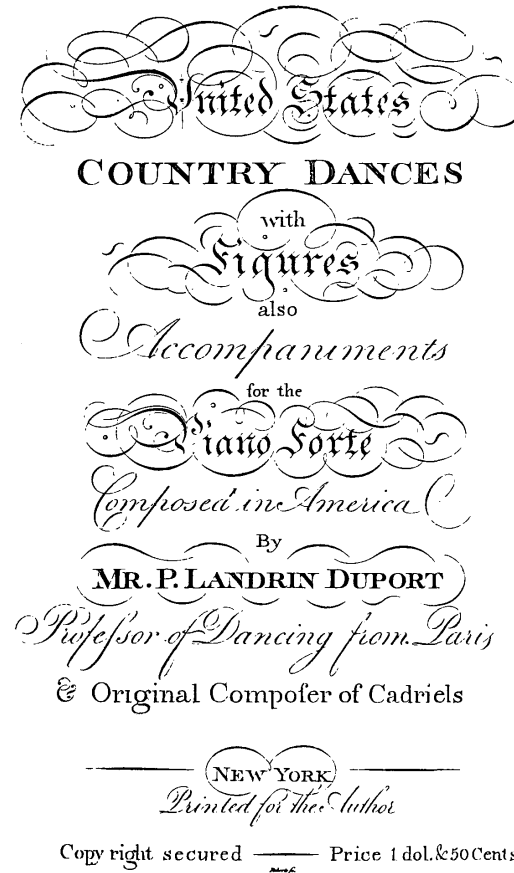 United States
COUNTRY DANCES
with
Figures
also
Accompaniments
for the
Piano Forte
Composed in America
By
MR. P. LANDRIN DUPORT
Profeſsor of Dancing from Paris
& Original Compoſer of Cadriels
NEW YORK
Printed for the Author
Copy right secured — Price 1 dol. & 50 Cents